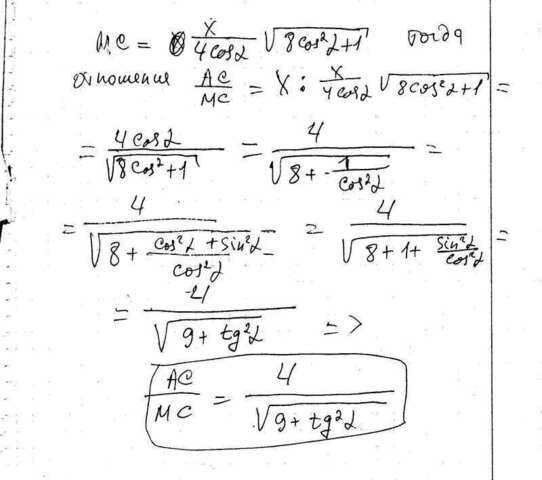 MC = x/(4cosα) √(8cos²α+1) тогда
отношение AC/MC = x : x/(4cosα) √(8cos²α+1) =
= 4cosα/√(8cos²+1) = 4/√(8+1/cos²α) =
= 4/√(8+(cos²α+sin²α)/cos²α) = 4/√(8+1+sin²α/cos²α) =
= 4/√(9+tg²α) =>
AC/MC = 4/√(9+tg²α)